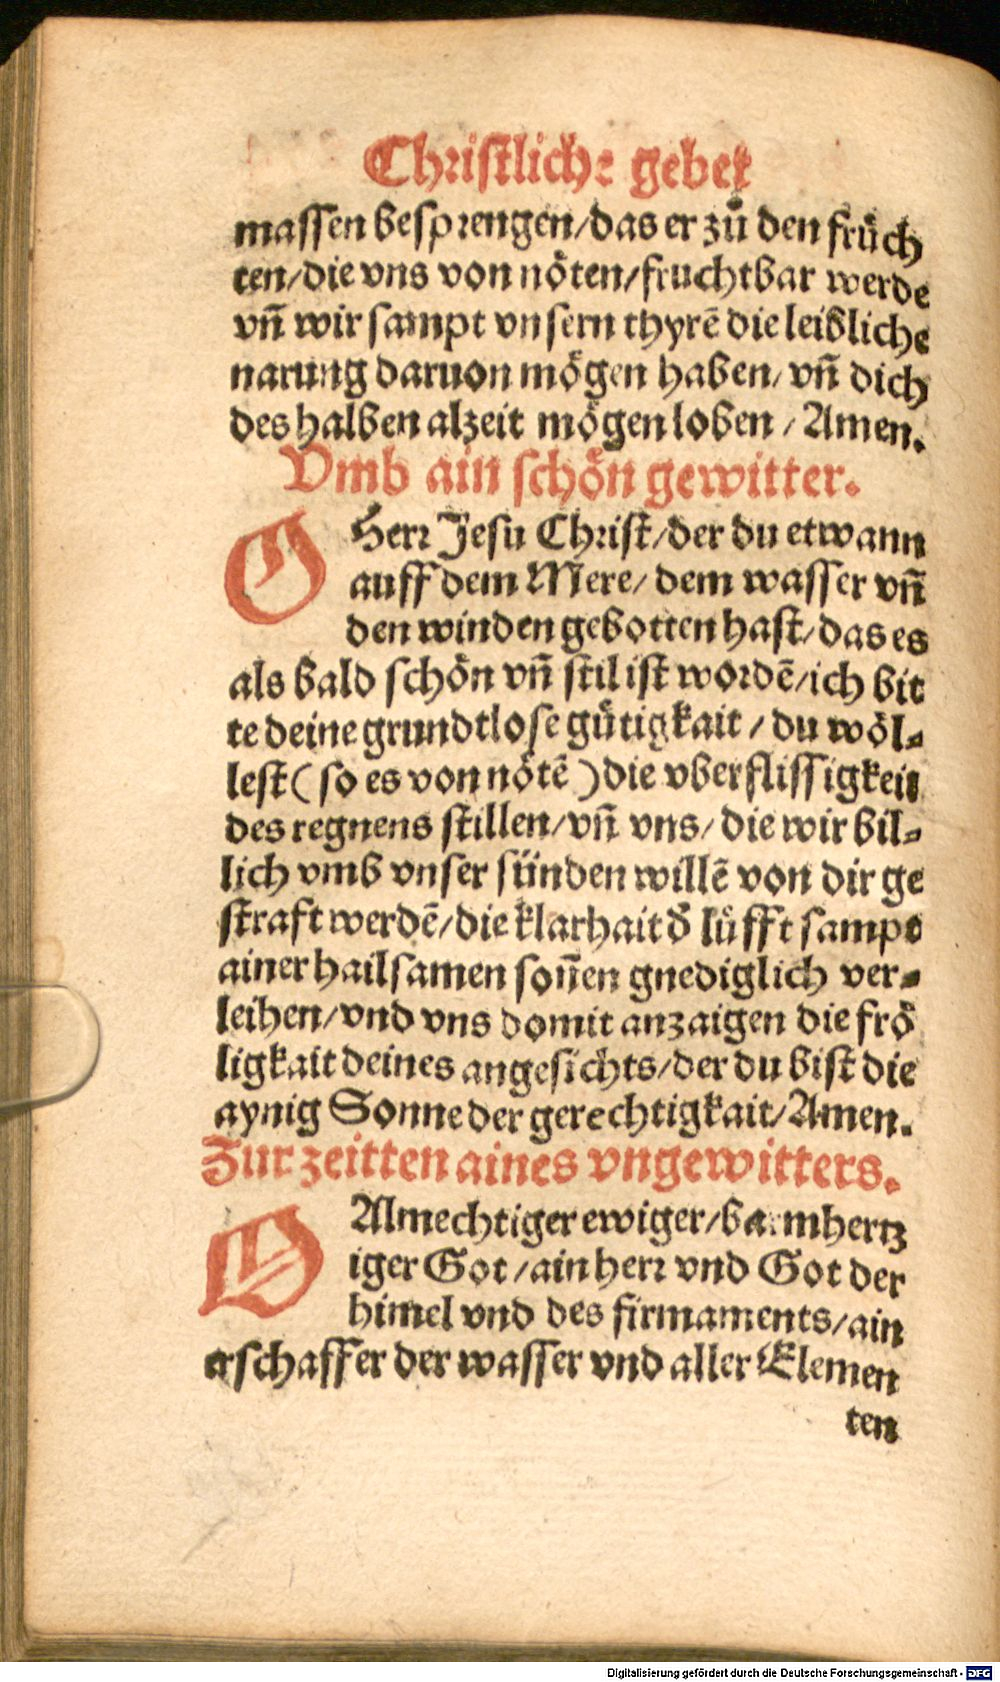 Christliche gebet
massen besprengen/das er zů den früch
ten/die vns von nöten/fruchtbar werde
vñ wir sampt vnsern thyrē die leibliche
narung daruon mögen haben/ vñ dich
des halben alzeit mögen loben / Amen.
Vmb ain schön gewitter.
O Herr Jesu Christ/der du etwann
auff dem Mere/ dem wasser vñ
den winden gebotten hast/das es
als bald schön vñ stil ist wordē/ich bit
te deine grundtlose gütigkait / du wöl-
lest ( so es von nötē ) die vberflissigkeit
des regnens stillen/vñ vns/ die wir bil-
lich vmb vnser sünden willē von dir ge
straft werdē/die klarhait đ lüfft sampt
ainer hailsamen soñen gnediglich ver-
leihen/vnd vns domit anzaigen die frö
ligkait deines angesichts/der du bist die
aynig Sonne der gerechtigkait/Amen.
Zur zeitten aines vngewitters.
O Almechtiger ewiger/barmhertz
iger Got /ain herr vnd Got der
himel vnd des firmaments/ain
erschaffer der wasser vnd aller Elemen
ten
Digitalisierung gefördert durch die Deutsche Forschungsgemeinschaft - DFG